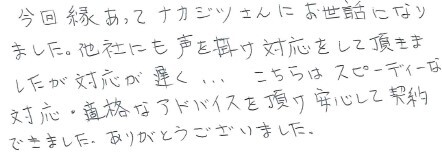 今回縁あってナカジツさんにお世話になり
ました。他社にも声を掛け対応をして頂きま
したが対応が遅く... こちらはスピーディーな
対応・適格なアドバイスを頂け安心して契約
できました。ありがとうございました。